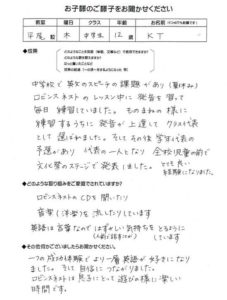 お子師のご様子をお聞かせください
教室 曜日 クラス 年齢 お名前
平尾 校 木 中学生 12 歳 KT
●成果
中学校で英文のスピーチの課題があり(夏休み)
ロビンスネストのレッスン中に発音を習って
毎日練習していました。そのまねの様に
練習するうちに発音が上達してクラス代表
として選ばれました。そしてその後学年代表の
予選があり 代表の一人となり 全校児童の前で
文化祭のステージで発表しました。とても良い
経験になりました。
●どのような取り組みをご家庭でされていますか?
ロビンスネストのCDを聞いたり
音楽(洋楽)を流したりしています
英語は言葉なので はずかしい気持ちを とるように
しています
●その他何かございましたらお聞かせください。
一つの成功体験でより一層英語が好きになり
ました。そして自信につながりました。
ロビンスネストは息子にとって遊びの様に楽しい
時間です。